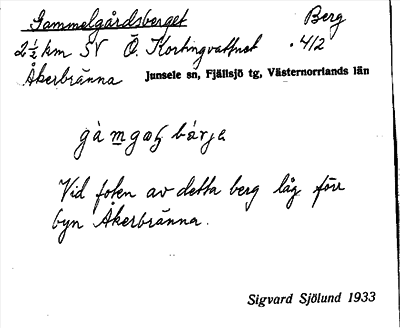 Gammelgårdsberget Berg
2 1/2 km SV Ö. Kortingvattnet . 412
Åkerbränna Junsele sn, Fjällsjö tg, Västernorrlands län
Vid foten av detta berg låg förr
byn Åkerbränna.
Sigvard Sjölund 1933